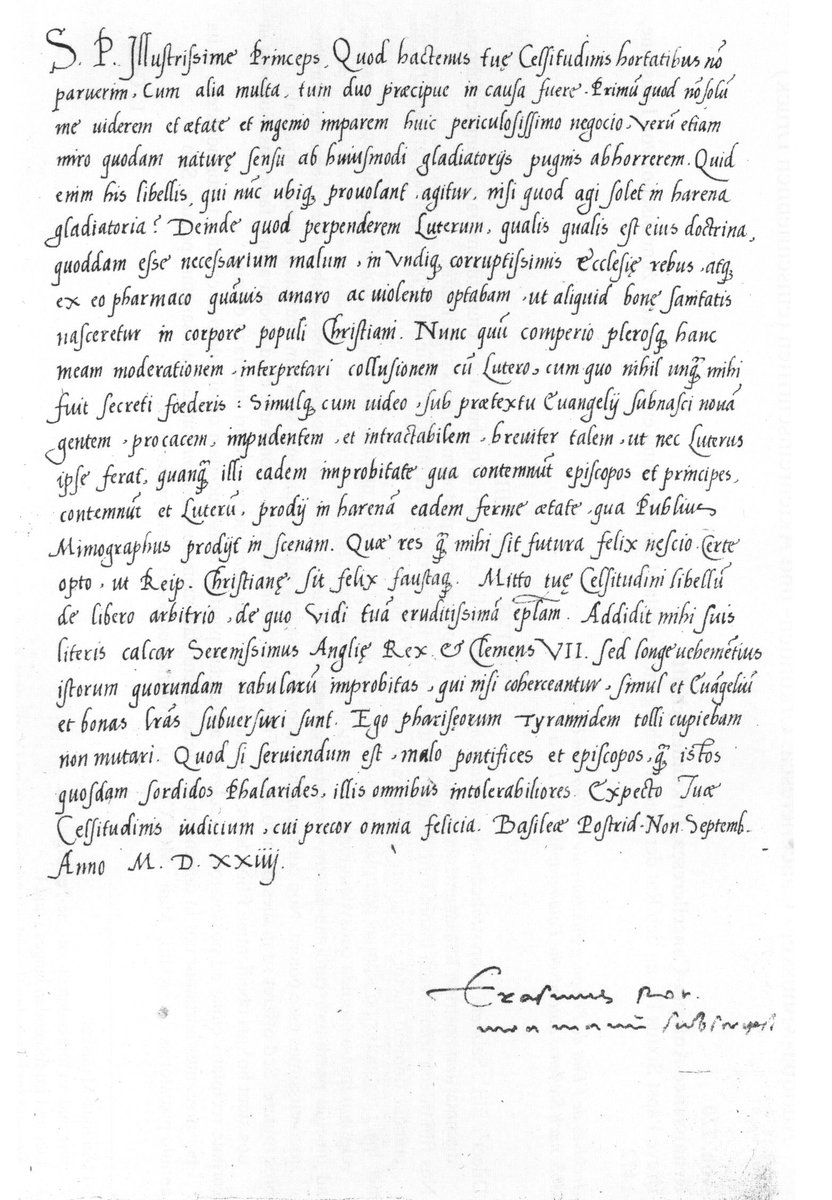 S. P. Illustrissime Princeps, Quod hactenus tuę Celsitudinis hortatibus nō
paruerim, Cum alia multa, tum duo præcipue in causa fuere. Primū quod nō solū
me uiderem et ætate et ingenio imparem huic periculosissimo negocio, Verū etiam
miro quodam naturę sensu ab huiusmodi gladiatorijs pugnis abhorrerem. Quid
enim his libellis, qui nūc ubiqꝫ prouolant, agitur, nisi quod agi solet in harena
gladiatoria? Deinde quod perpenderem Luterum, qualis qualis est eius doctrina,
quoddam esse necessarium malum, in Vndiqꝫ corruptissimis Ecclesię rebus, atqꝫ
ex eo pharmaco quāuis amaro ac uiolento optabam, ut aliquid bonę sanitatis
nasceretur in corpore populi Christiani. Nunc quū comperio plerosqꝫ hanc
meam moderationem, interpretari collusionem cū Lutero, cum quo nihil unqꝫ̄ mihi
fuit secreti fœderis: Simulqꝫ cum uideo, sub prætextu Euangelij subnasci nouā
gentem, procacem, impudentem, et intractabilem, breuiter talem, ut nec Luterus
ipse ferat, quanqꝫ̄ illi eadem improbitate qua contemnūt episcopos et principes,
contemnūt et Luterū, prodij in harenā eadem ferme ætate, qua Publius
Mimographus prodijt in scenam. Quæ res qꝫ̄ mihi sit futura felix nescio. Certe
opto, ut Reip. Christianę sit felix faustaqꝫ. Mitto tuę Celsitudini libellū
de libero arbitrio, de quo Vidi tuā eruditissimā ep̄lam. Addidit mihi suis
literis calcar Serenissimus Anglię Rex & Clemens VII. sed longe uehemētius
istorum quorundam rabularū improbitas, qui nisi coherceantur, simul et Euāgeliū
et bonas lr̄as subuersuri sunt. Ego pharisęorum Tyrannidem tolli cupiebam
non mutari. Quod si seruiendum est, malo pontifices et episcopos, qꝫ̄ istos
quosdam sordidos Phalarides, illis omnibus intolerabiliores. Expecto Tuæ
Celsitudinis iudicium, cui precor omnia felicia. Basileæ Postrid. Non. Septemb.
Anno M. D. XXiiij.
Erasmus Rot.
mea manu subscripsi